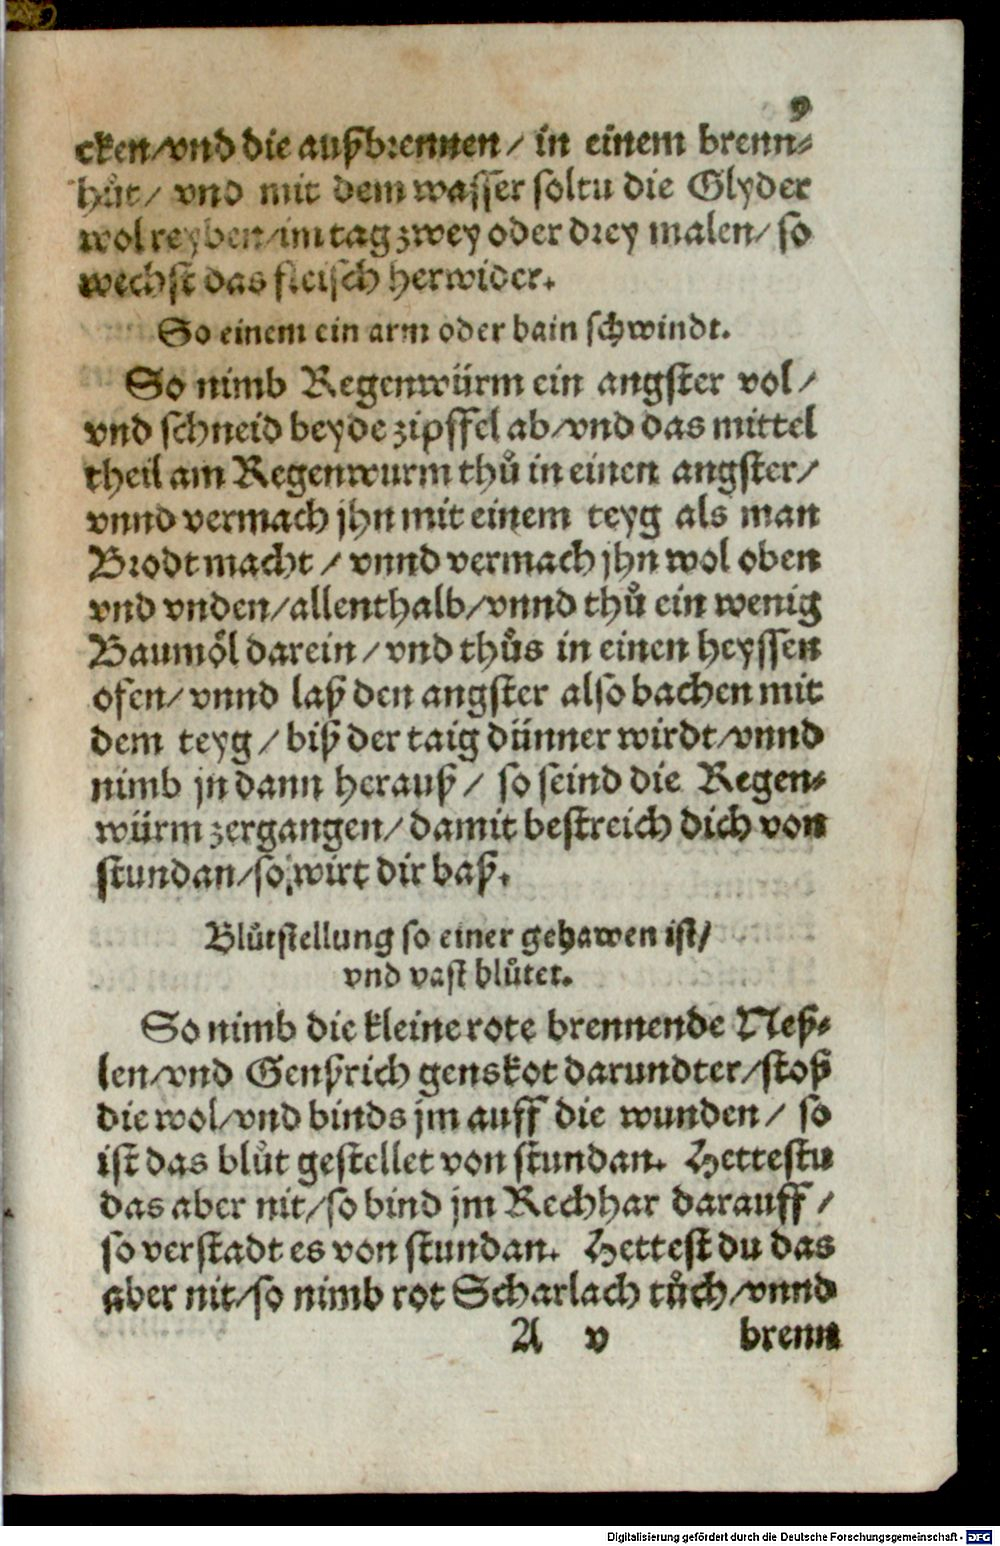 9
cken/vnd die außbrennen/ in einem brenn⸗
hůt/ vnd mit dem wasser soltu die Glyder
wol reyben/im tag zwey oder drey malen/ so
wechst das fleisch herwider.
So einem ein arm oder bain schwindt.
So nimb Regenwürm ein angster vol/
vnd schneid beyde zipffel ab/vnd das mittel
theil am Regenwurm thů in einen angster/
vnnd vermach jhn mit einem teyg als man
Brodt macht/ vnnd vermach jhn wol oben
vnd vnden/allenthalb/vnnd thů ein wenig
Baumöl darein/vnd thůs in einen heyssen
ofen/ vnnd laß den angster also bachen mit
dem teyg/ biß der taig dünner wirdt/vnnd
nimb jn dann herauß/ so seind die Regen⸗
würm zergangen/ damit bestreich dich von
stundan/so wirt dir baß.
Blůtstellung so einer gehawen ist/
vnd vast blůtet.
So nimb die kleine rote brennende Neß⸗
len/vnd Genßrich genskot darundter/stoß
die wol/vnd binds jm auff die wunden/ so
ist das blůt gestellet von stundan. Hettestu
das aber nit/so bind jm Rechhar darauff/
so verstadt es von stundan. Hettest du das
aber nit/so nimb rot Scharlach tůch/vnnd
A v brenn
Digitalisierung gefördert durch die Deutsche Forschungsgemeinschaft - DFG